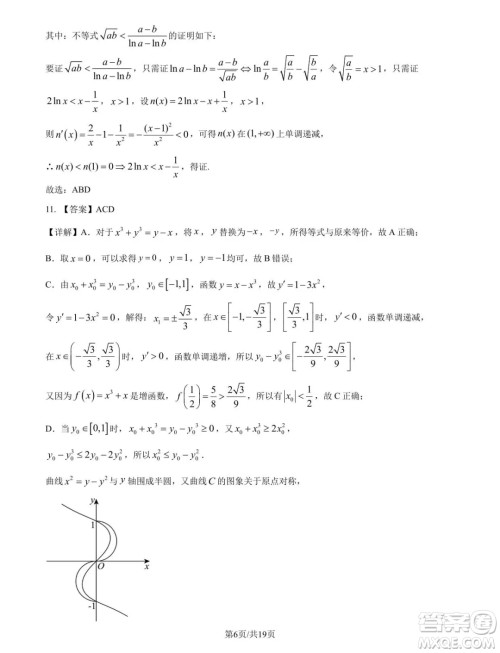 其中：不等式 √ab < (a−b)/(ln a−ln b) 的证明如下：
要证 √ab < (a−b)/(ln a−ln b)，只需证 ln a−ln b < (a−b)/√ab ⇔ ln a/b < √(a/b) − √(b/a)，令 √(a/b) = x > 1，只需证
2ln x < x − 1/x，x > 1，设 n(x) = 2ln x − x + 1/x，x > 1，
则 n′(x) = 2/x − 1 − 1/x² = −(x−1)²/x² < 0，可得 n(x) 在 (1,+∞) 上单调递减，
∴ n(x) < n(1) = 0 ⇒ 2ln x < x − 1/x，得证.
故选：ABD
11. 【答案】ACD
【详解】A．对于 x³ + y³ = y − x，将 x，y 替换为 −x，−y，所得等式与原来等价，故 A 正确；
B．取 x = 0，可以求得 y = 0，y = 1，y = −1，故 B 错误；
C．由 x₀ + x₀³ = y₀ − y₀³，y₀ ∈ [−1,1]，函数 y = x − x³，故 y′ = 1 − 3x²，
令 y′ = 1 − 3x² = 0，解得：x₁ = ±√3/3，在 x ∈ [−1, −√3/3]，[√3/3, 1] 时，y′ < 0，函数单调递减，
在 x ∈ (−√3/3, √3/3) 时，y′ > 0，函数单调递增，所以 y₀ − y₀³ ∈ [−2√3/9, 2√3/9]，
又因为 f(x) = x³ + x 是增函数，f(1/2) = 5/8 > 2√3/9，所以有 |x₀| < 1/2，故 C 正确；
D．当 y₀ ∈ [0,1] 时，x₀ + x₀³ = y₀ − y₀³ ≥ 0，又 x₀ + x₀³ ≥ 2x₀²，
y₀ − y₀³ ≤ 2y₀ − 2y₀²，所以 x₀² ≤ y₀ − y₀²，
曲线 x² = y − y² 与 y 轴围成半圆，又曲线 C 的图象关于原点对称，
y
1
O
x
-1
第6页/共19页